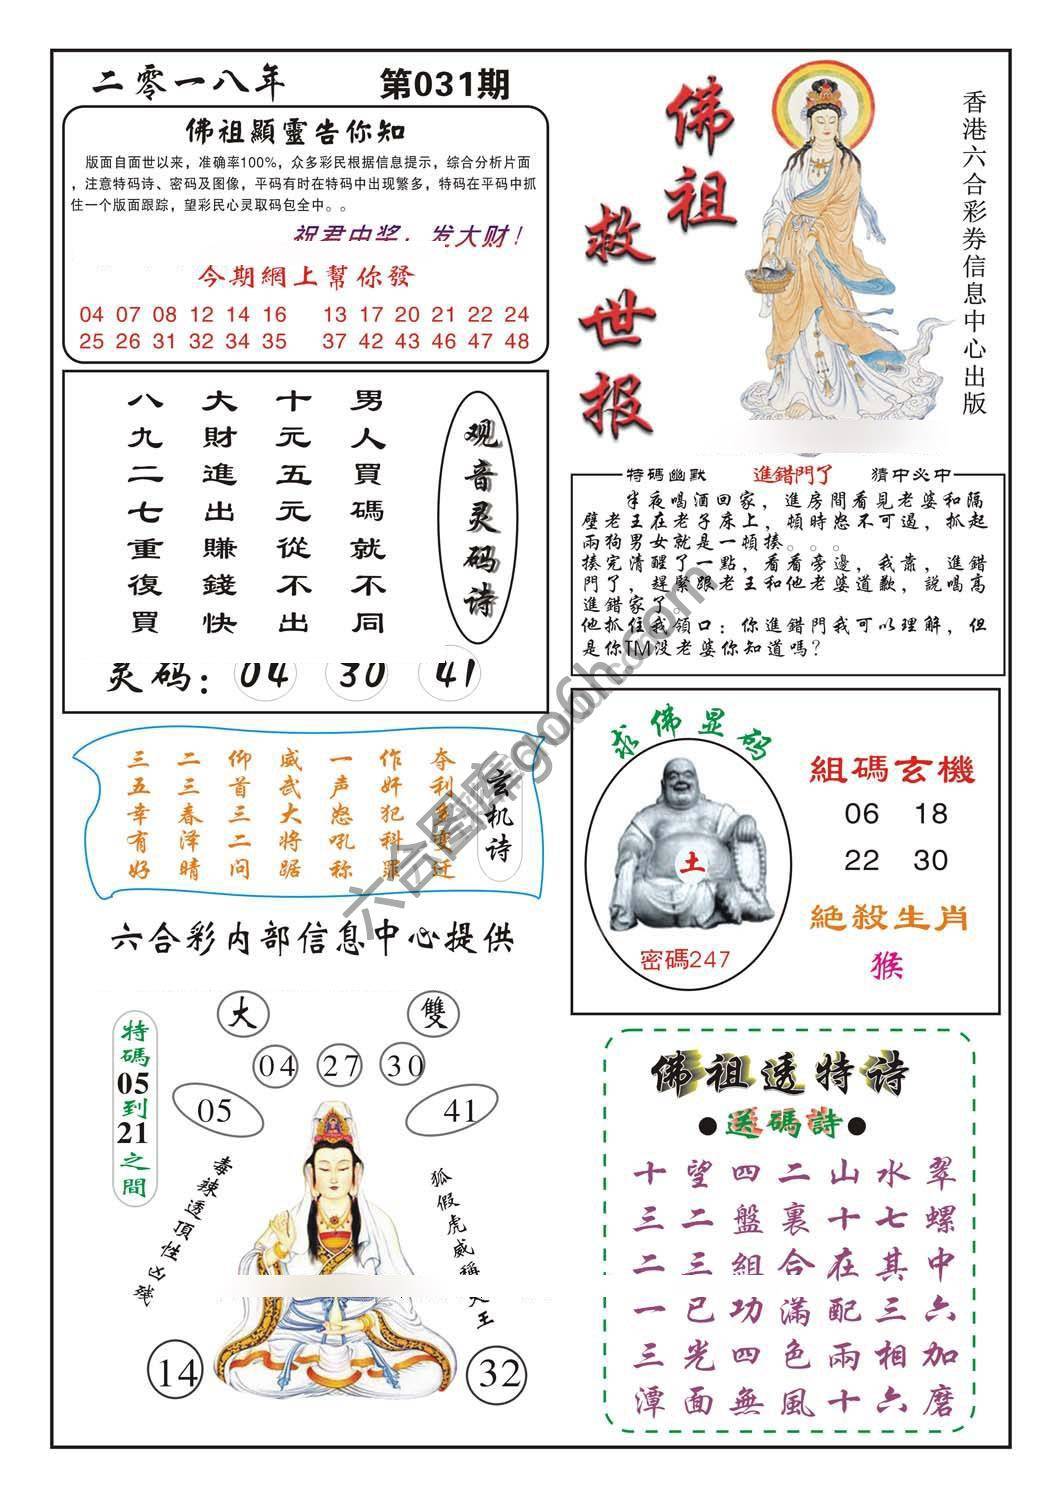 二零一八年 第031期
佛祖顯靈告你知
版面自面世以来，准确率100%，众多彩民根据信息提示，综合分析片面
，注意特码诗、密码及图像，平码有时在特码中出现繁多，特码在平码中抓
住一个版面跟踪，望彩民心灵取码包全中。。
祝君中奖，发大财！
今期網上幫你發
04 07 08 12 14 16 13 17 20 21 22 24
25 26 31 32 34 35 37 42 43 46 47 48
佛祖
救世报
香港六合彩券信息中心出版
观音灵码诗
男人買碼就不同
十元五元從不出
大財進出賺錢快
八九二七重復買
灵码：04 30 41
特碼幽默 進錯門了 猜中必中
半夜喝酒回家，進房間看見老婆和隔
壁老王在老子床上，頓時怒不可遏，抓起
兩狗男女就是一頓揍。。。
揍完清醒了一點，看看旁邊，我靠，進錯
門了，趕緊跟老王和他老婆道歉，説喝高
進錯家了。
他抓住我領口：你進錯門我可以理解，但
是你TM没老婆你知道嗎？
玄机诗
夺利 变迁
作奸犯科罪
一声怒吼称
威武大将踞
仰首三二问
二三春泽晴
三五幸有好
六合彩内部信息中心提供
求佛显码
土
密碼247
組碼玄機
06 18
22 30
絕殺生肖
猴
大 雙
04 27 30
05 41
特碼05到21之間
毒辣透頂性凶殘
狐假虎威稱 王
14 32
佛祖透特诗
●送碼詩●
十望四二山水翠
三二盤裏十七螺
二三組合在其中
一已功滿配三六
三光四色兩相加
潭面無風十六磨
六合图库go6h.com